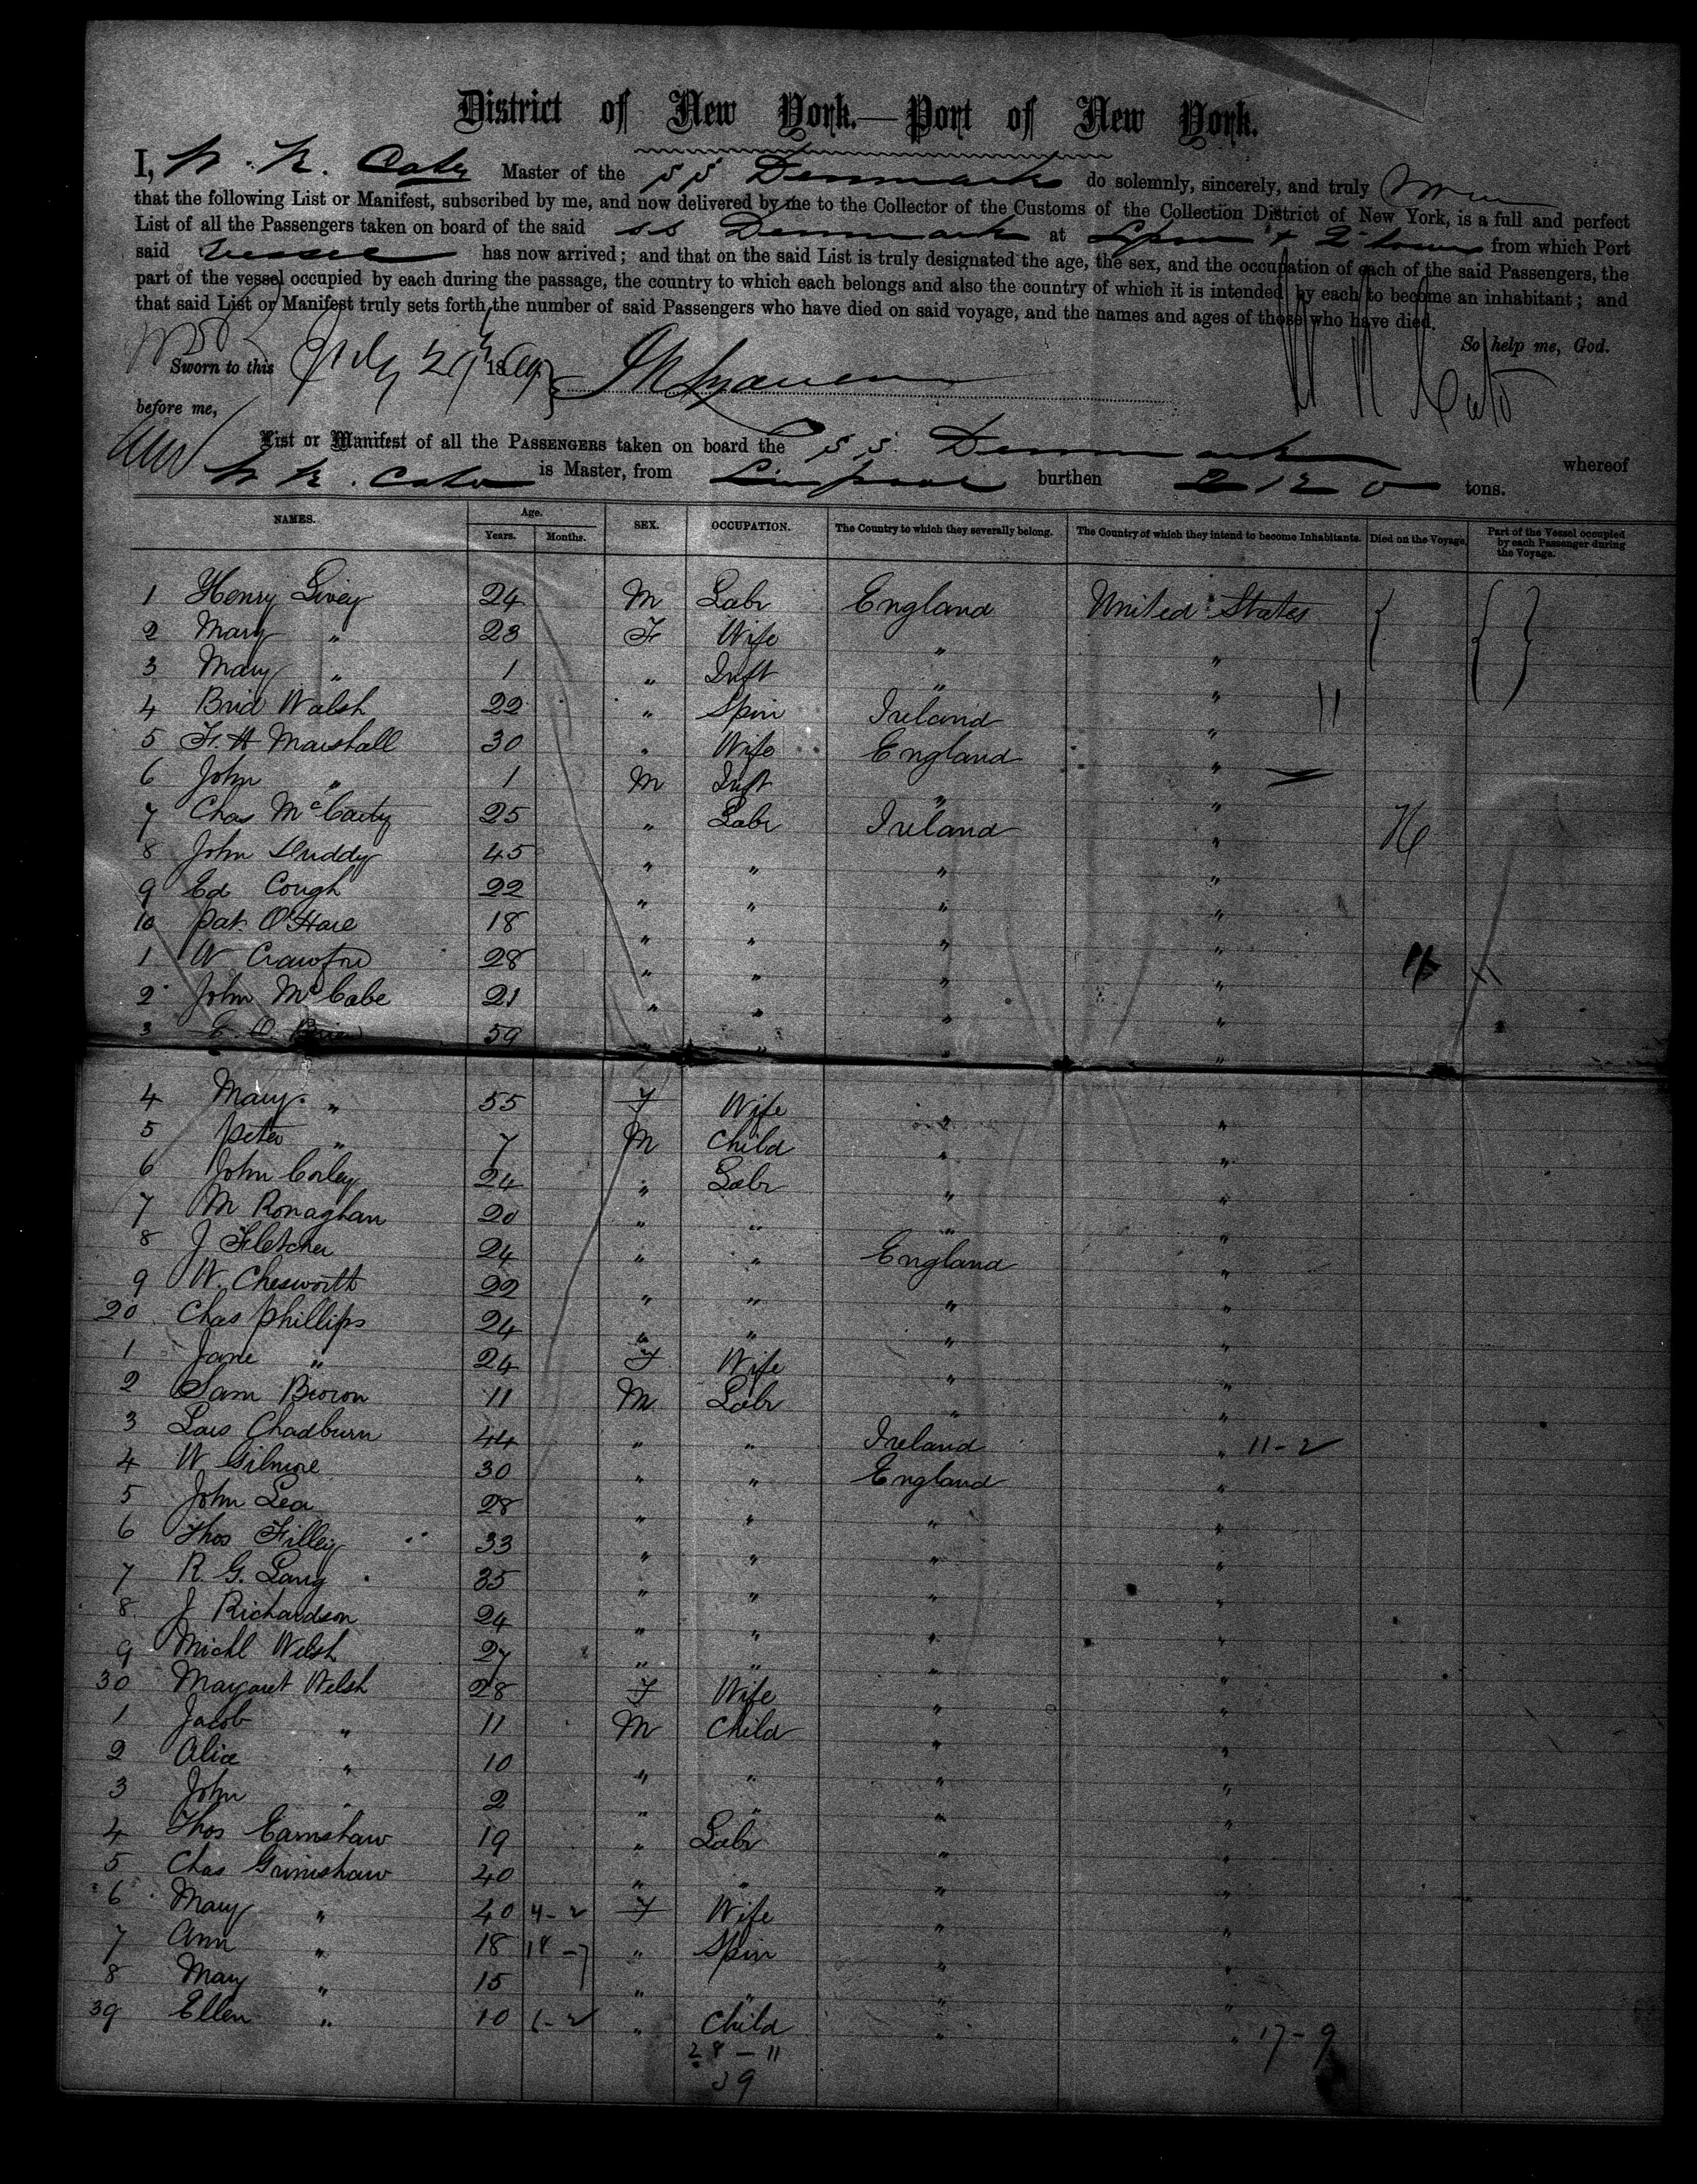 District of New York.—Port of New York.
I, Master of the SS Denmark do solemnly, sincerely, and truly
that the following List or Manifest, subscribed by me, and now delivered by me to the Collector of the Customs of the Collection District of New York, is a full and perfect
List of all the Passengers taken on board of the said SS Denmark at from which Port
said Vessel has now arrived; and that on the said List is truly designated the age, the sex, and the occupation of each of the said Passengers, the
part of the vessel occupied by each during the passage, the country to which each belongs and also the country of which it is intended by each to become an inhabitant; and
that said List or Manifest truly sets forth the number of said Passengers who have died on said voyage, and the names and ages of those who have died.
So help me, God.
Sworn to this July 1869
before me,
List or Manifest of all the PASSENGERS taken on board the S.S. Denmark whereof
is Master, from Liverpool burthen tons.
NAMES. Age. Years. Months. SEX. OCCUPATION. The Country to which they severally belong. The Country of which they intend to become Inhabitants. Died on the Voyage. Part of the Vessel occupied by each Passenger during the Voyage.
1 Henry Livey 24 M Labr England United States
2 Mary " 23 F Wife " "
3 Mary " 1 " Inft " "
4 Brid Walsh 22 " Spin Ireland " 11
5 F. H Marshall 30 " Wife England "
6 John " 1 M Inft " "
7 Chas McCarty 25 " Labr Ireland "
8 John Duddy 45 " " " "
9 Ed Cough 22 " " " "
10 Pat O'Hare 18 " " " "
1 W Crawford 28 " " " "
2 John McCabe 21 " " " "
3 O Brien 59 " " " "
4 Mary " 55 F Wife " "
5 Peter " 7 M Child " "
6 John Corley 24 " Labr " "
7 M Ronaghan 20 " " " "
8 J Fletcher 24 " " England "
9 W. Chesworth 22 " " " "
20 Chas Phillips 24 " " " "
1 Jane " 24 F Wife " "
2 Sam Brown 11 M Labr " "
3 Chadburn 44 " " Ireland " 11-2
4 W Gilmore 30 " " England "
5 John Lea 28 " " " "
6 Thos Filley 33 " " " "
7 R. G. Lang 35 " " " "
8 J Richardson 24 " " " "
9 Michl Welsh 27 " " " "
30 Margaret Welsh 28 F Wife " "
1 Jacob " 11 M Child " "
2 Alice " 10 " " " "
3 John " 2 " " " "
4 Thos Earnshaw 19 " Labr " "
5 Chas Grimshaw 40 " " " "
6 Mary " 40 4-2 F Wife " "
7 Ann " 18 18-7 " Spin " "
8 Mary " 15 " " " "
39 Ellen " 10 " Child " " 17-9
28-11
39